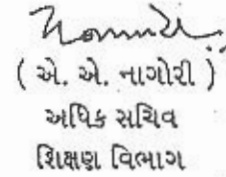 ( એ. એ. નાગોરી )
અધિક સચિવ
શિક્ષણ વિભાગ